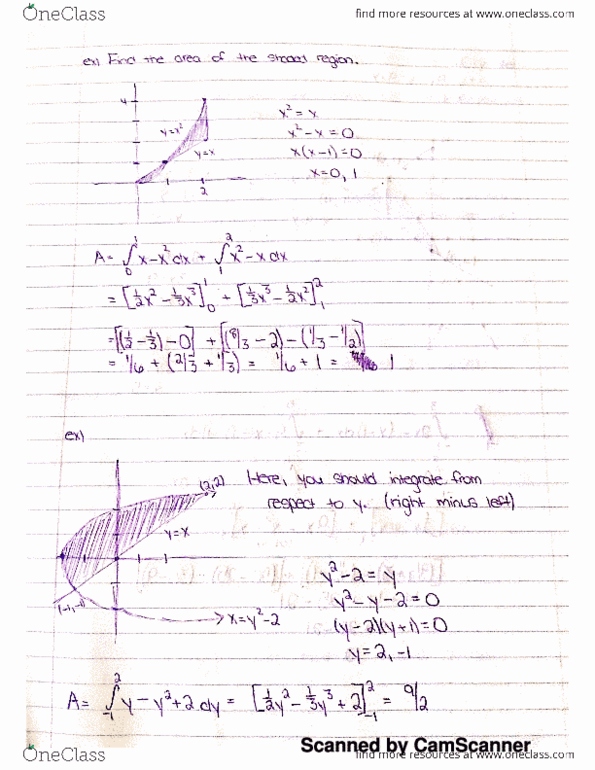 OneClass
find more resources at www.oneclass.com
ex) Find the area of the shaded region.
4
y=x²
y=x
1
2
x² = x
x² - x = 0
x(x-1)=0
x=0, 1
A= ∫₀¹ x-x² dx + ∫₁² x²-x dx
= [½x² - ⅓x³]₀¹ + [⅓x³ - ½x²]₁²
=[(½ - ⅓) - 0] + [(8/3 - 2) - (1/3 - 1/2)]
= 1/6 + (2/3 + 1/3) = 1/6 + 1 = 1
ex)
(2,2)
y=x
(-1,-1)
x=y²-2
Here, you should integrate from
respect to y. (right minus left)
y²-2=y
y²-y-2=0
(y-2)(y+1)=0
y=2,-1
A= ∫₋₁² y-y²+2 dy = [½y² - ⅓y³+2]₋₁² = 9/2
Scanned by CamScanner
OneClass
find more resources at www.oneclass.com